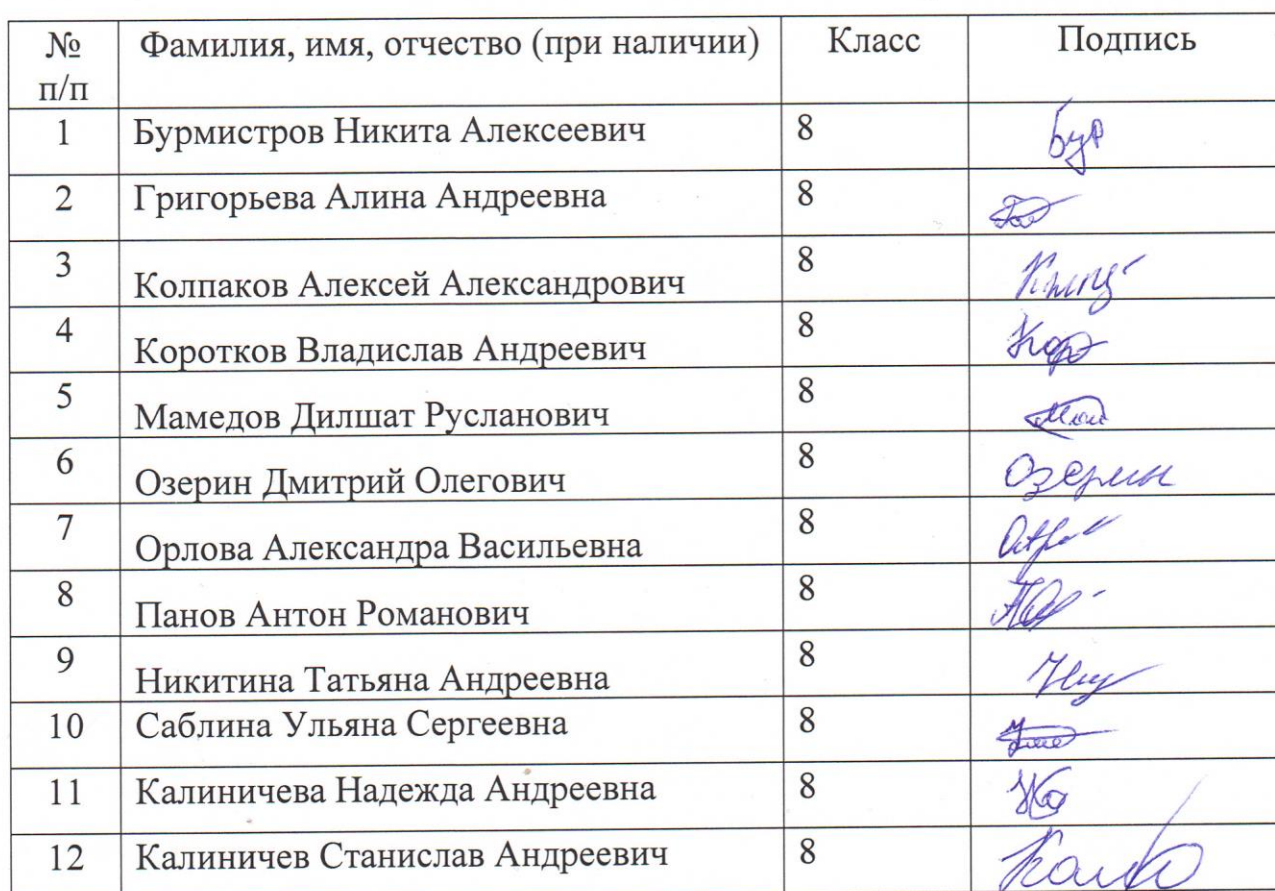 № п/п Фамилия, имя, отчество (при наличии) Класс Подпись
1 Бурмистров Никита Алексеевич 8 Бур
2 Григорьева Алина Андреевна 8
3 Колпаков Алексей Александрович 8
4 Коротков Владислав Андреевич 8 Кор
5 Мамедов Дилшат Русланович 8
6 Озерин Дмитрий Олегович 8 Озерин
7 Орлова Александра Васильевна 8
8 Панов Антон Романович 8
9 Никитина Татьяна Андреевна 8
10 Саблина Ульяна Сергеевна 8
11 Калиничева Надежда Андреевна 8
12 Калиничев Станислав Андреевич 8